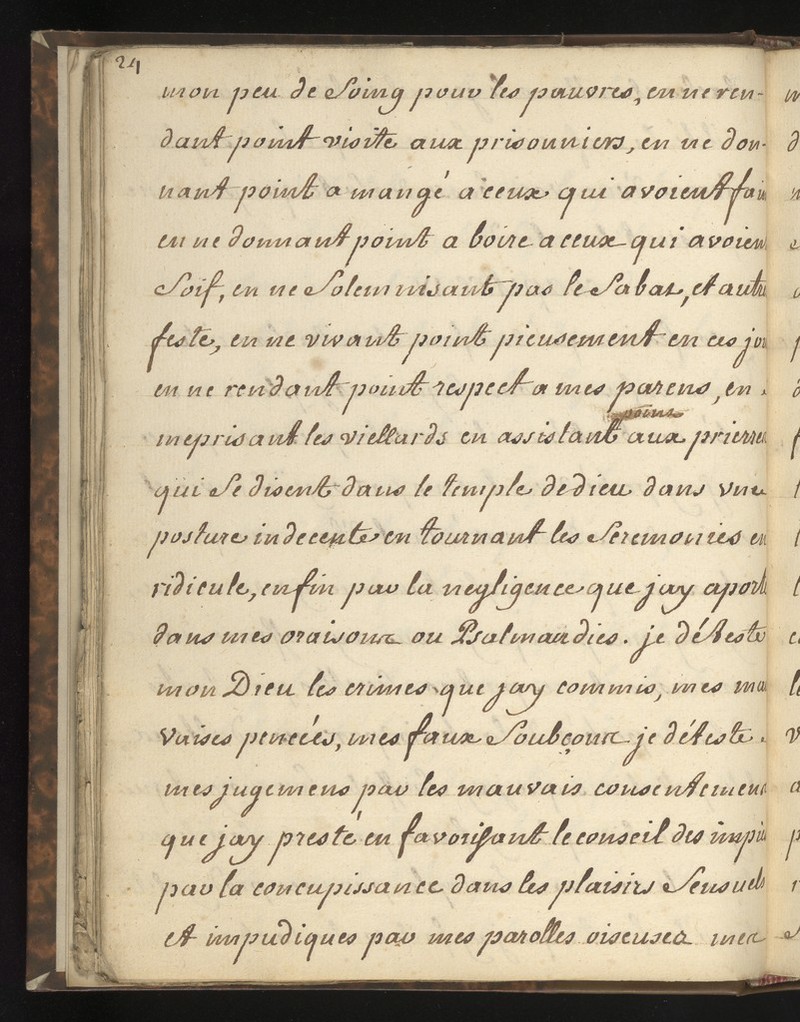 24
mon peu de Soing pour les pauvres, en ne ren-
dant point visite aux prisonniers, en ne don-
nant point a mangé a ceux qui avoient fai
en ne donnant point a boire a ceux qui avoien
Soif, en ne Solemnisant pas le Sabat, et autre
feste, en ne vivant point pieusement en ces jou
en ne rendant point respect a mes parens, en
point
meprisant les viellards en assistant aux prierres
qui Se disent dans le temple de dieu dans vne
posture indecente en tournant les Seremonies en
ridicule, enfin par la negligence que jay aport
dans mes oraisons ou Psalmaudies. je déteste
mon Dieu les crimes que jay commis, mes ma
vaises penceés, mes faux Soubçons je déteste
mes jugemens par les mauvais consentemens
que jay presté en favorisant le conseil des impi
par la concupissance dans les plaisirs Sensuels
et impudiques par mes parolles oiseuses mes